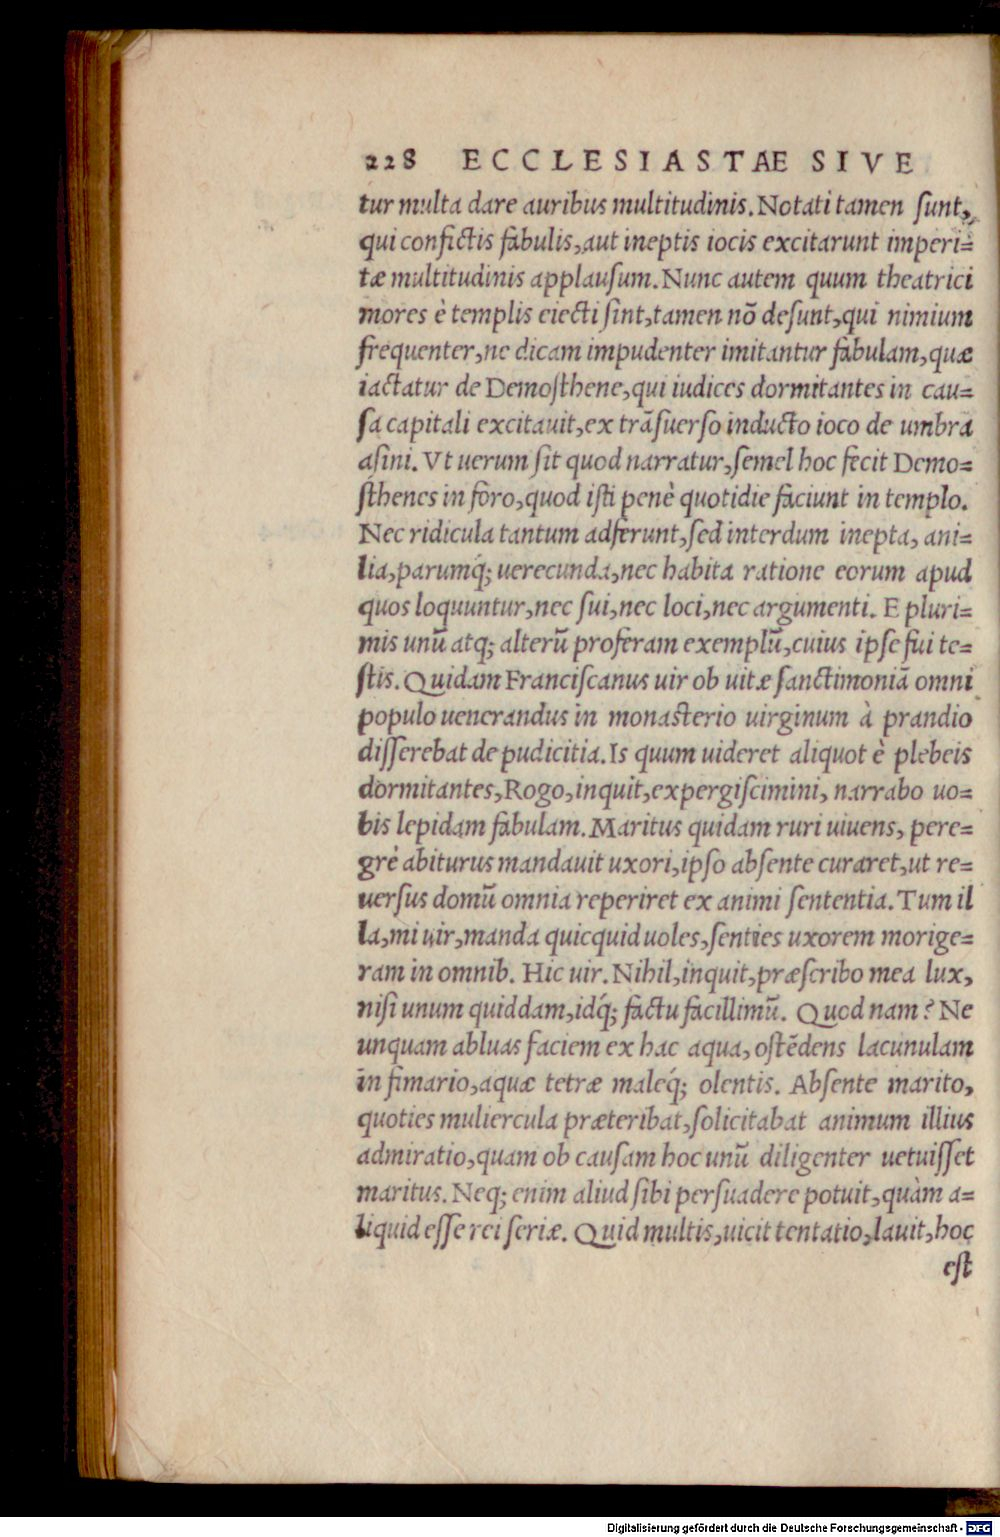 228 ECCLESIASTAE SIVE
tur multa dare auribus multitudinis. Notati tamen ſunt,
qui confictis fabulis, aut ineptis iocis excitarunt imperi=
tæ multitudinis applauſum. Nunc autem quum theatrici
mores è templis eiecti ſint, tamen nō deſunt, qui nimium
frequenter, ne dicam impudenter imitantur fabulam, quæ
iactatur de Demoſthene, qui iudices dormitantes in cau=
ſa capitali excitauit, ex trāſuerſo inducto ioco de umbra
aſini. Vt uerum ſit quod narratur, ſemel hoc fecit Demo=
ſthenes in foro, quod iſti penè quotidie faciunt in templo.
Nec ridicula tantum adferunt, ſed interdum inepta, ani=
lia, parumq́; uerecunda, nec habita ratione eorum apud
quos loquuntur, nec ſui, nec loci, nec argumenti. E pluri=
mis unū atq; alterū proferam exemplū, cuius ipſe fui te=
ſtis. Quidam Franciſcanus uir ob uitæ ſanctimoniā omni
populo uenerandus in monaſterio uirginum à prandio
diſſerebat de pudicitia. Is quum uideret aliquot è plebeis
dormitantes, Rogo, inquit, expergiſcimini, narrabo uo=
bis lepidam fabulam. Maritus quidam ruri uiuens, pere=
grè abiturus mandauit uxori, ipſo abſente curaret, ut re=
uerſus domū omnia reperiret ex animi ſententia. Tum il
la, mi uir, manda quicquid uoles, ſenties uxorem morige=
ram in omnib. Hic uir. Nihil, inquit, præſcribo mea lux,
niſi unum quiddam, idq́; factu facillimū. Quod nam? Ne
unquam abluas faciem ex hac aqua, oſtēdens lacunulam
in fimario, aquæ tetræ maleq́; olentis. Abſente marito,
quoties muliercula præteribat, ſolicitabat animum illius
admiratio, quam ob cauſam hoc unū diligenter uetuiſſet
maritus. Neq; enim aliud ſibi perſuadere potuit, quàm a=
liquid eſſe rei ſeriæ. Quid multis, uicit tentatio, lauit, hoc
eſt
Digitalisierung gefördert durch die Deutsche Forschungsgemeinschaft - DFG